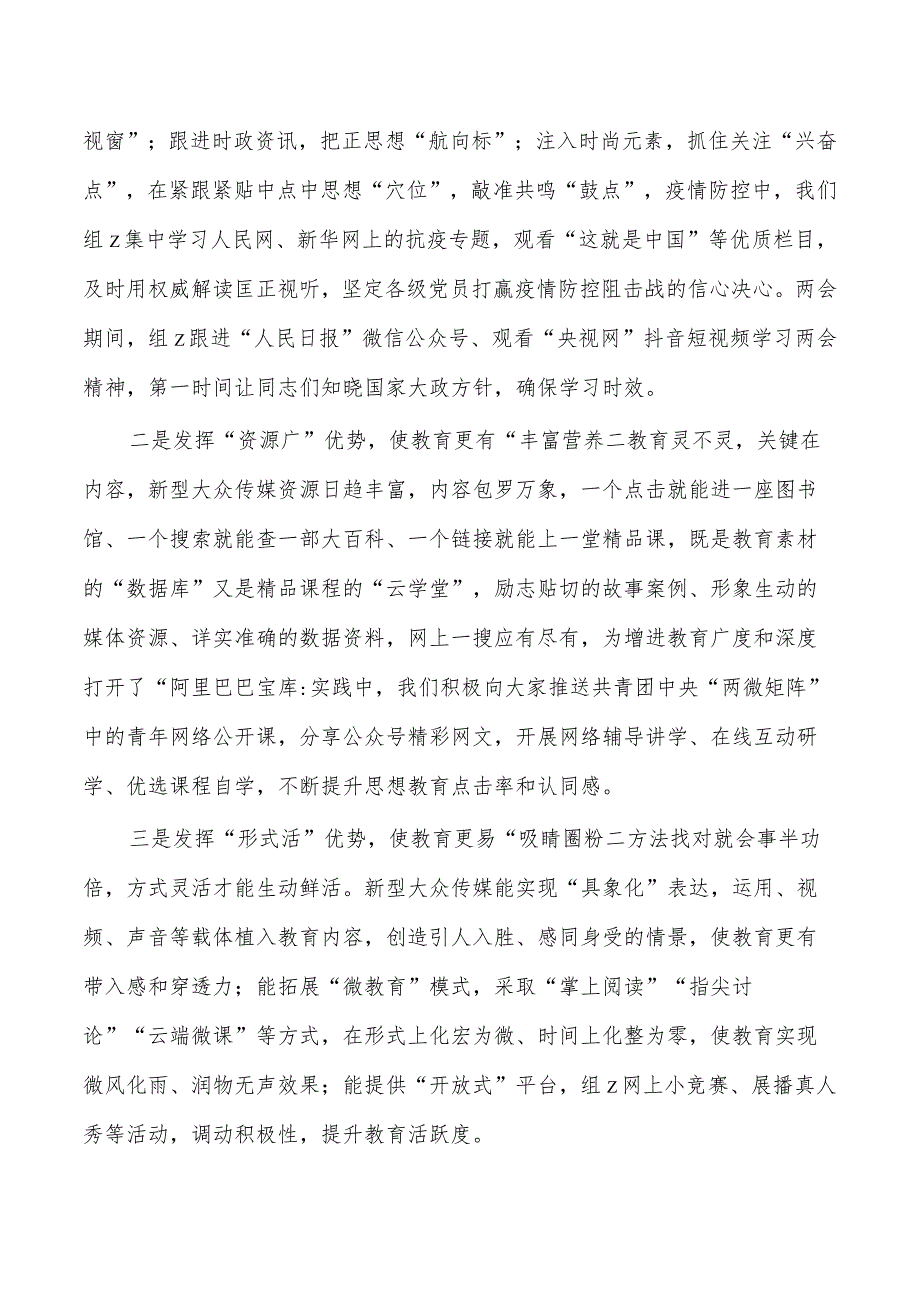 视窗”；跟进时政资讯，把正思想“航向标”；注入时尚元素，抓住关注“兴奋
点”，在紧跟紧贴中点中思想“穴位”，敲准共鸣“鼓点”，疫情防控中，我们
组z集中学习人民网、新华网上的抗疫专题，观看“这就是中国”等优质栏目，
及时用权威解读匡正视听，坚定各级党员打赢疫情防控阻击战的信心决心。两会
期间，组z跟进“人民日报”微信公众号、观看“央视网”抖音短视频学习两会
精神，第一时间让同志们知晓国家大政方针，确保学习时效。
二是发挥“资源广”优势，使教育更有“丰富营养二教育灵不灵，关键在
内容，新型大众传媒资源日趋丰富，内容包罗万象，一个点击就能进一座图书
馆、一个搜索就能查一部大百科、一个链接就能上一堂精品课，既是教育素材
的“数据库”又是精品课程的“云学堂”，励志贴切的故事案例、形象生动的
媒体资源、详实准确的数据资料，网上一搜应有尽有，为增进教育广度和深度
打开了“阿里巴巴宝库:实践中，我们积极向大家推送共青团中央“两微矩阵”
中的青年网络公开课，分享公众号精彩网文，开展网络辅导讲学、在线互动研
学、优选课程自学，不断提升思想教育点击率和认同感。
三是发挥“形式活”优势，使教育更易“吸睛圈粉二方法找对就会事半功
倍，方式灵活才能生动鲜活。新型大众传媒能实现“具象化”表达，运用、视
频、声音等载体植入教育内容，创造引人入胜、感同身受的情景，使教育更有
带入感和穿透力；能拓展“微教育”模式，采取“掌上阅读”“指尖讨
论”“云端微课”等方式，在形式上化宏为微、时间上化整为零，使教育实现
微风化雨、润物无声效果；能提供“开放式”平台，组z网上小竞赛、展播真人
秀等活动，调动积极性，提升教育活跃度。